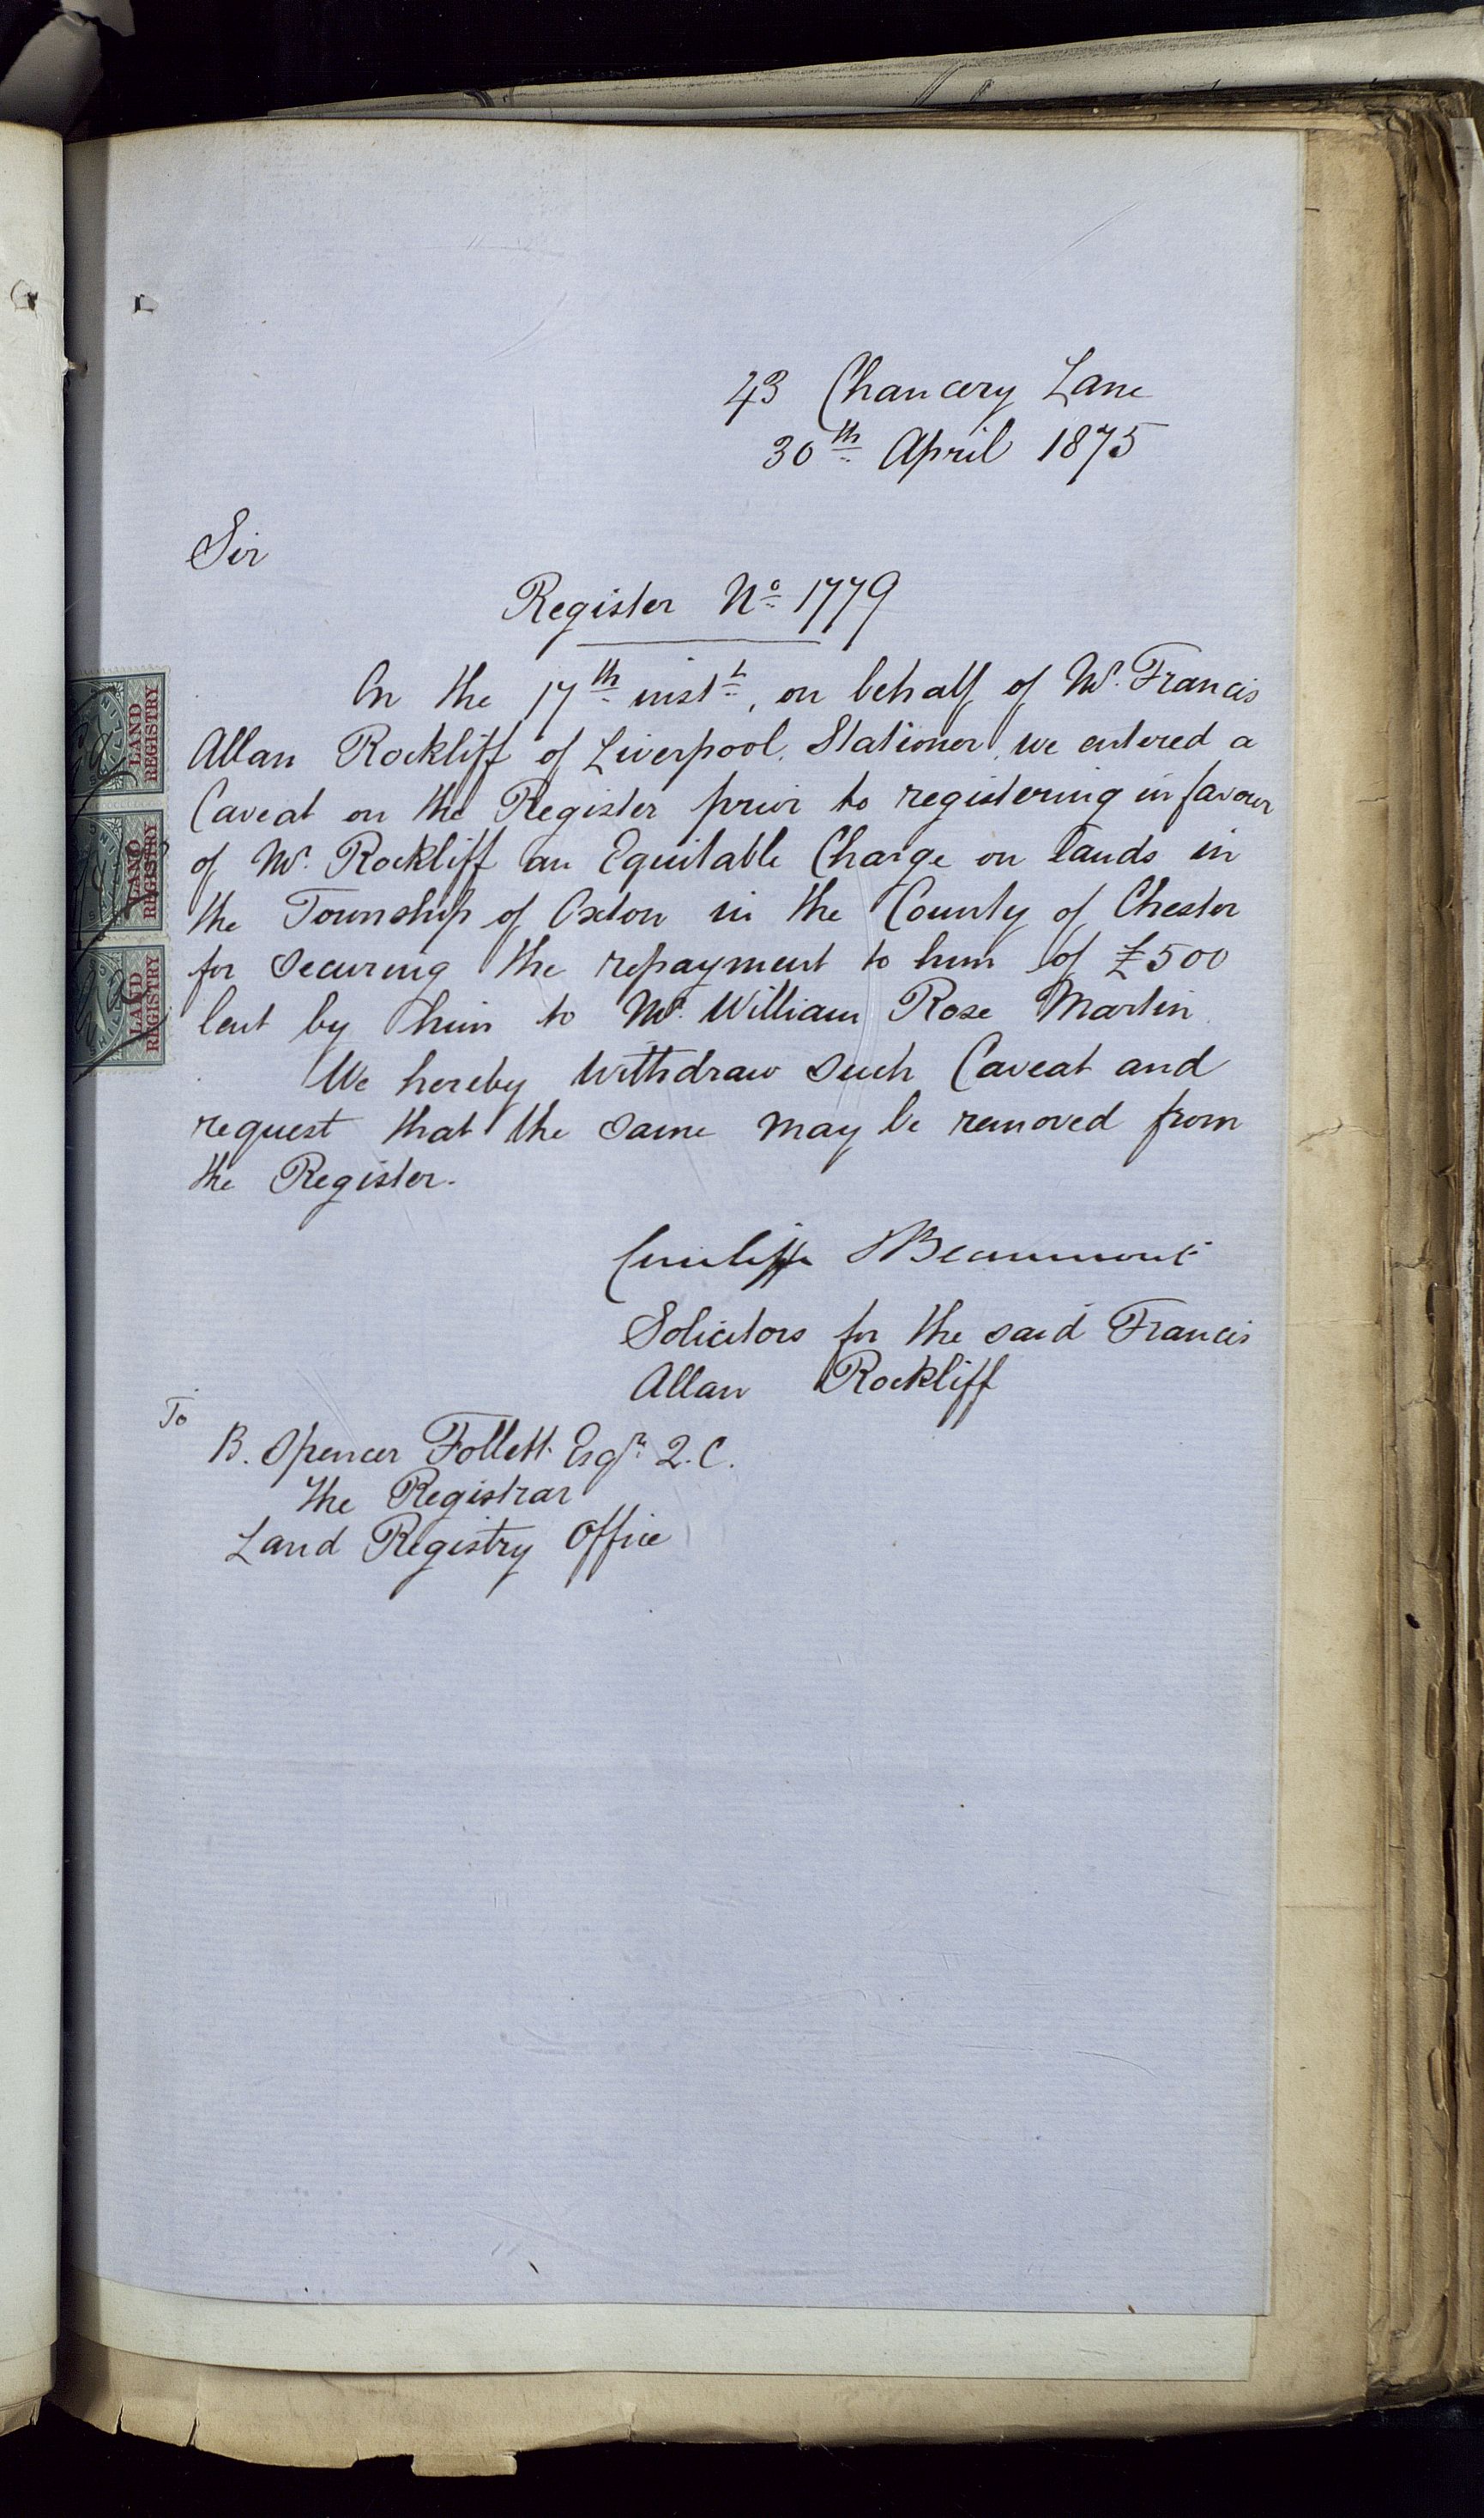 43 Chancery Lane
30th April 1875
Sir
Register No 1779
On the 17th inst, on behalf of Mr. Francis
Allan Rockliff of Liverpool, Stationer, we entered a
Caveat on the Register prior to registering in favour
of Mr. Rockliff an Equitable Charge on lands in
the Township of Oxton in the County of Chester
for securing the repayment to him of £500
lent by him to Mr. William Rose Martin
We hereby withdraw such Caveat and
request that the same may be removed from
the Register.
Cunliffe & Beaumont
Solicitors for the said Francis
Allan Rockliff
To
B. Spencer Follett Esqre Q.C.
The Registrar
Land Registry Office
LAND
REGISTRY
LAND
REGISTRY
LAND
REGISTRY